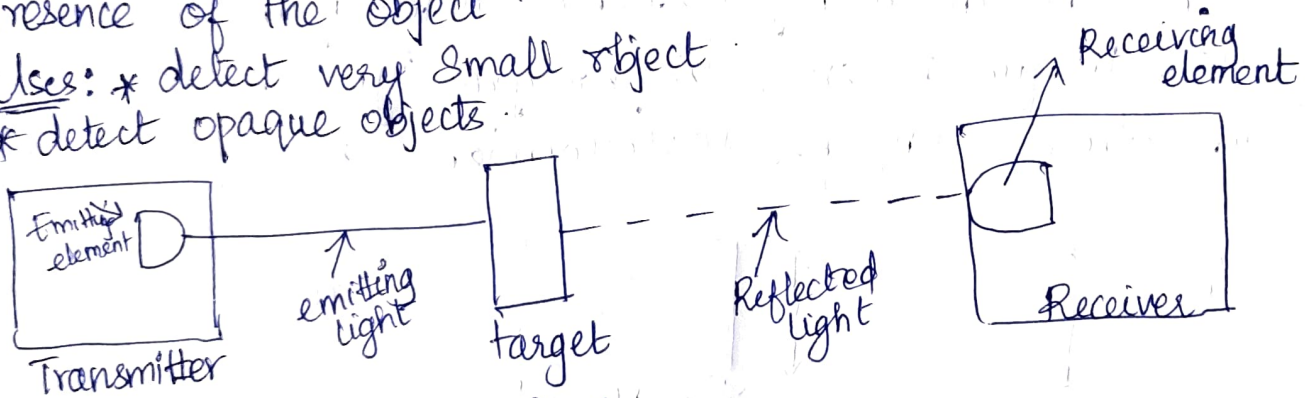 resence of the object
Uses: * detect very small object
* detect opaque objects
Receiving
element
Emitting
element
emitting
light
target
Reflected
light
Receiver
Transmitter